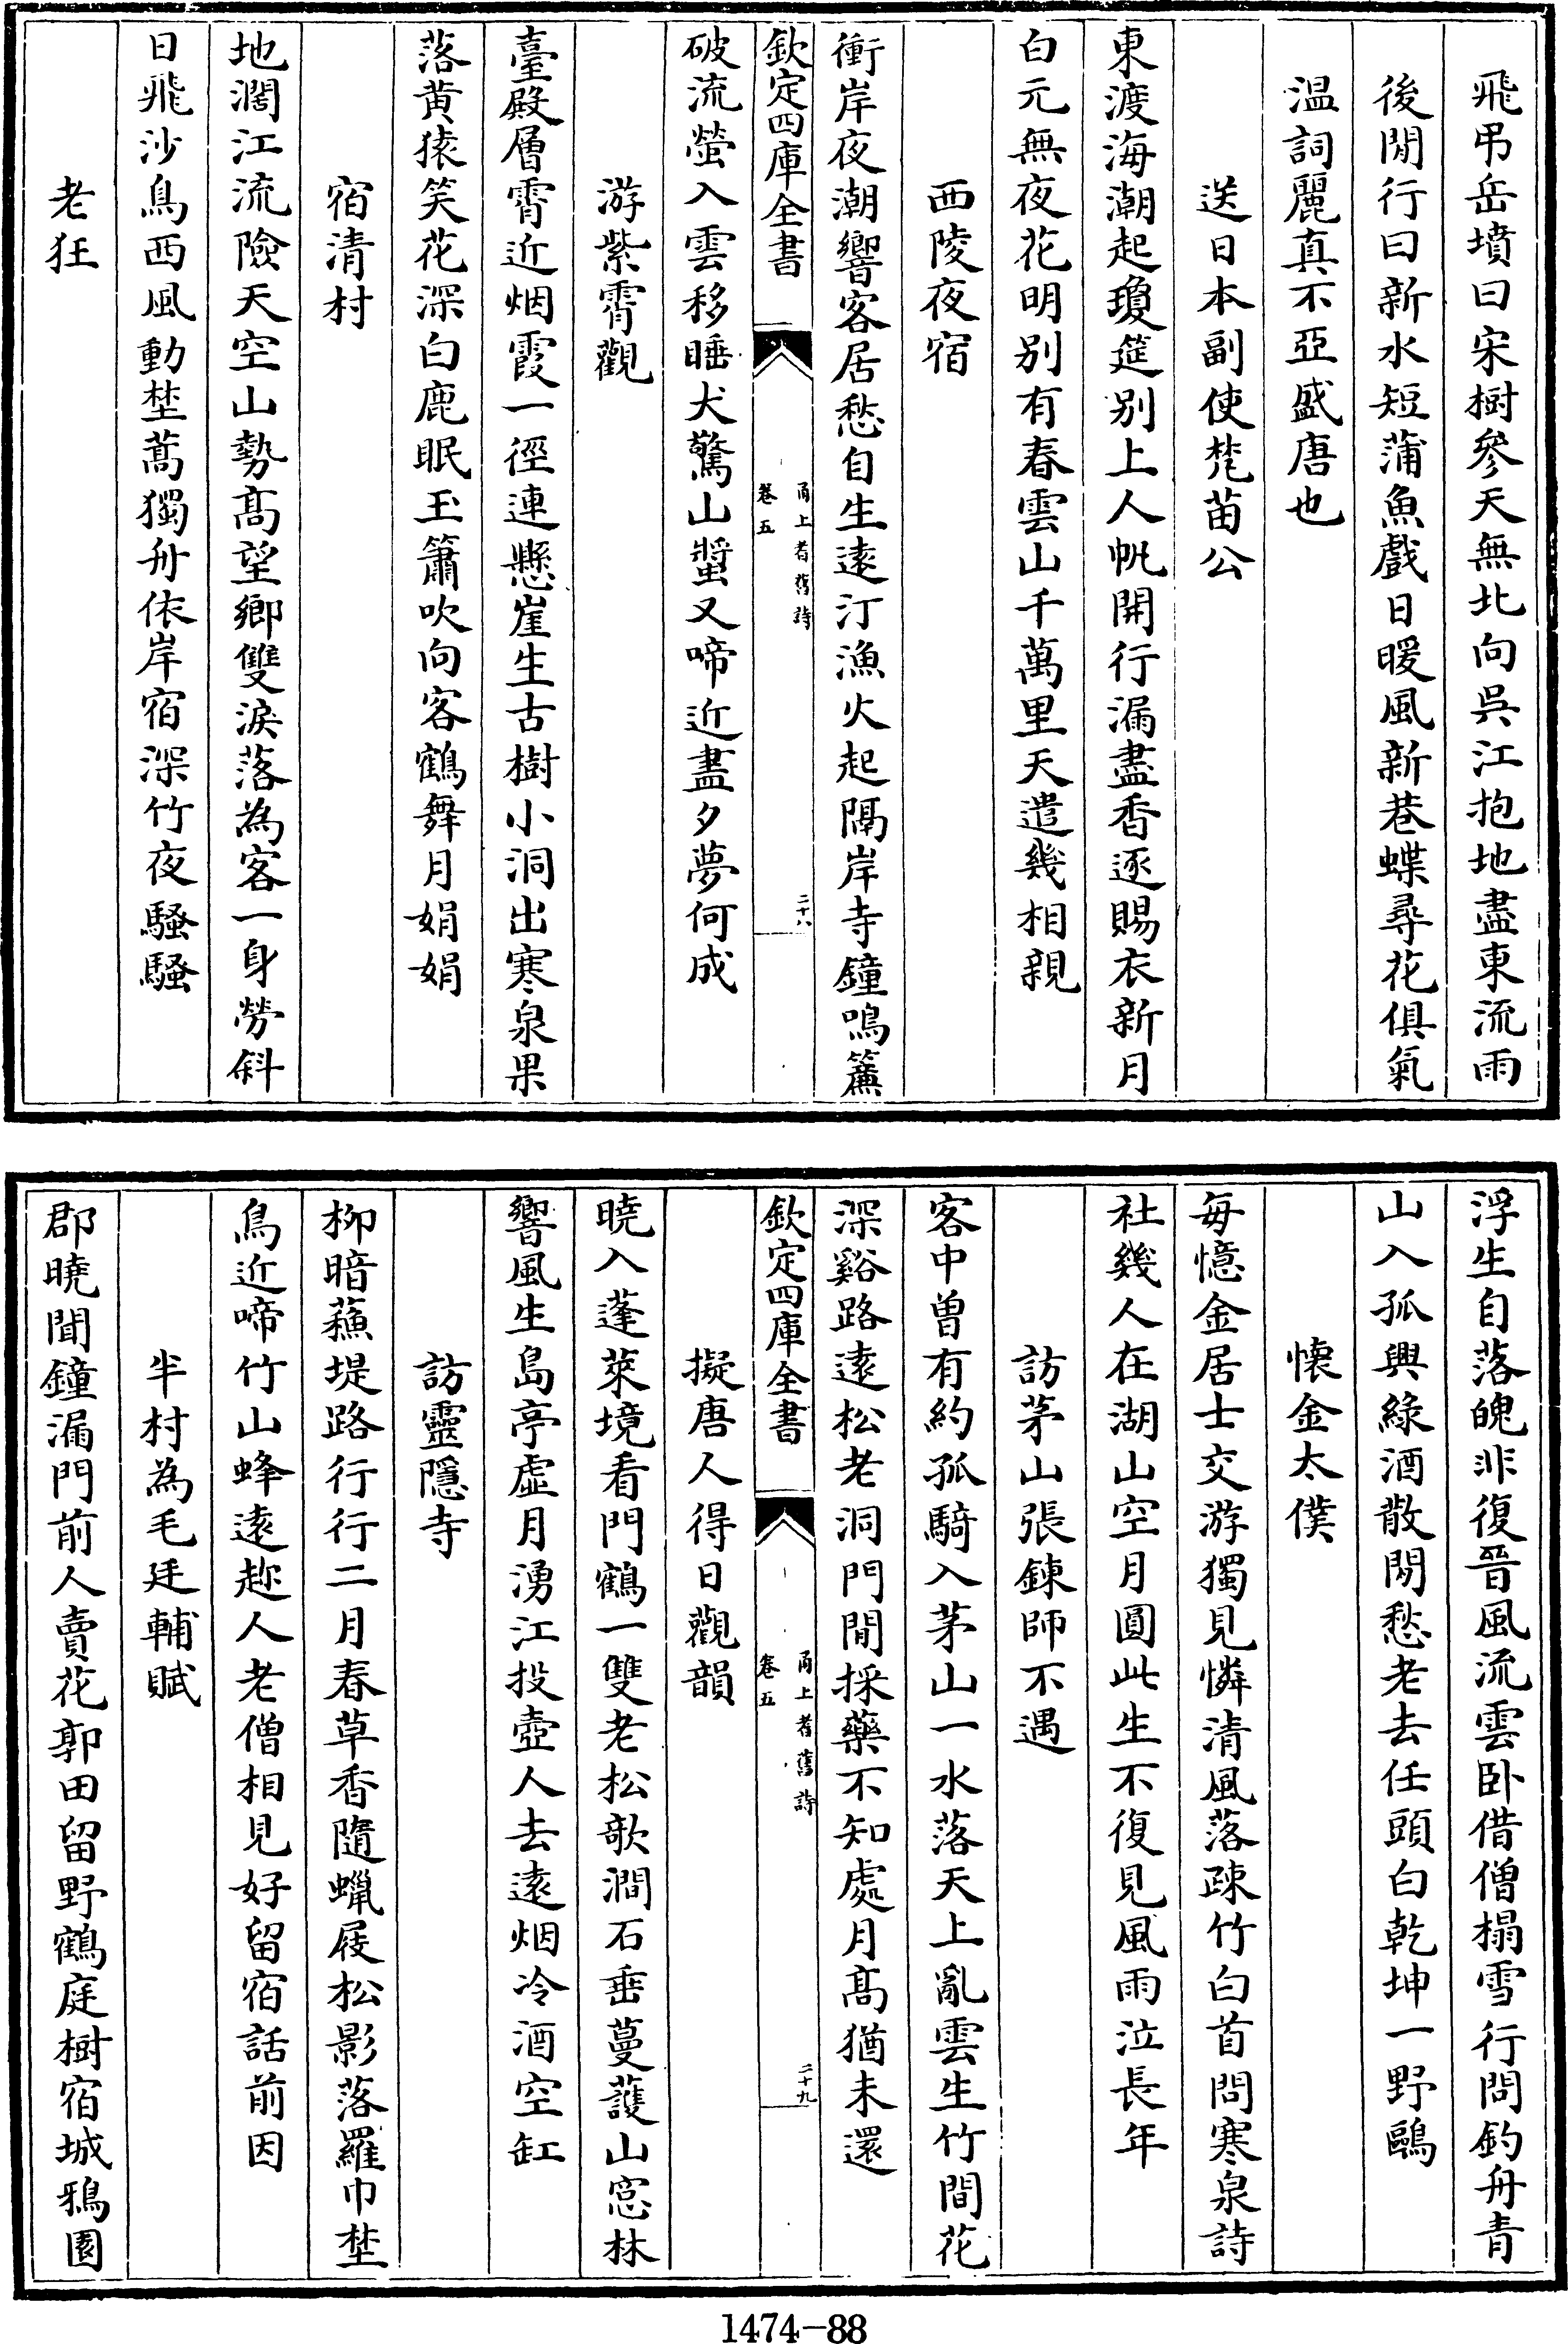 飛弔岳墳曰宋樹參天無北向吳江抱地盡東流雨
後閒行曰新水短蒲魚戲日暖風新巷蝶尋花俱氣
温詞麗真不亞盛唐也
送日本副使梵苗公
東渡海潮起瓊筵别上人帆開行漏盡香逐賜衣新月
白元無夜花明别有春雲山千萬里天遣幾相親
西陵夜宿
衝岸夜潮響客居愁自生遠汀漁火起隔岸寺鐘鳴簾
欽定四庫全書
甬上耆舊詩
卷五
二十八
破流螢入雲移睡犬驚山螿又啼近盡夕夢何成
游紫霄觀
臺殿層霄近烟霞一徑連懸崖生古樹小洞出寒泉果
落黄猿笑花深白鹿眠玉簫吹向客鶴舞月娟娟
宿清村
地濶江流險天空山勢髙望鄉雙淚落為客一身勞斜
日飛沙鳥西風動埜蒿獨舟依岸宿深竹夜騷騷
老狂
浮生自落魄非復晉風流雲卧借僧榻雪行問釣舟青
山入孤興綠酒散閒愁老去任頭白乾坤一野鷗
懐金太僕
每憶金居士交游獨見憐清風落疎竹白首問寒泉詩
社幾人在湖山空月圓此生不復見風雨泣長年
訪茅山張鍊師不遇
客中曽有約孤騎入茅山一水落天上亂雲生竹間花
深谿路遠松老洞門閒採藥不知處月髙猶未還
欽定四庫全書
甬上耆舊詩
卷五
二十九
擬唐人得日觀韻
曉入蓬萊境看門鶴一雙老松欹澗石垂蔓護山窓林
響風生島亭虚月湧江投壺人去遠烟冷酒空缸
訪靈隱寺
柳暗蘓堤路行行二月春草香隨蠟屐松影落羅巾埜
鳥近啼竹山蜂遠趂人老僧相見好留宿話前因
半村為毛廷輔賦
郡曉聞鐘漏門前人賣花郭田留野鶴庭樹宿城鴉園
1474-88